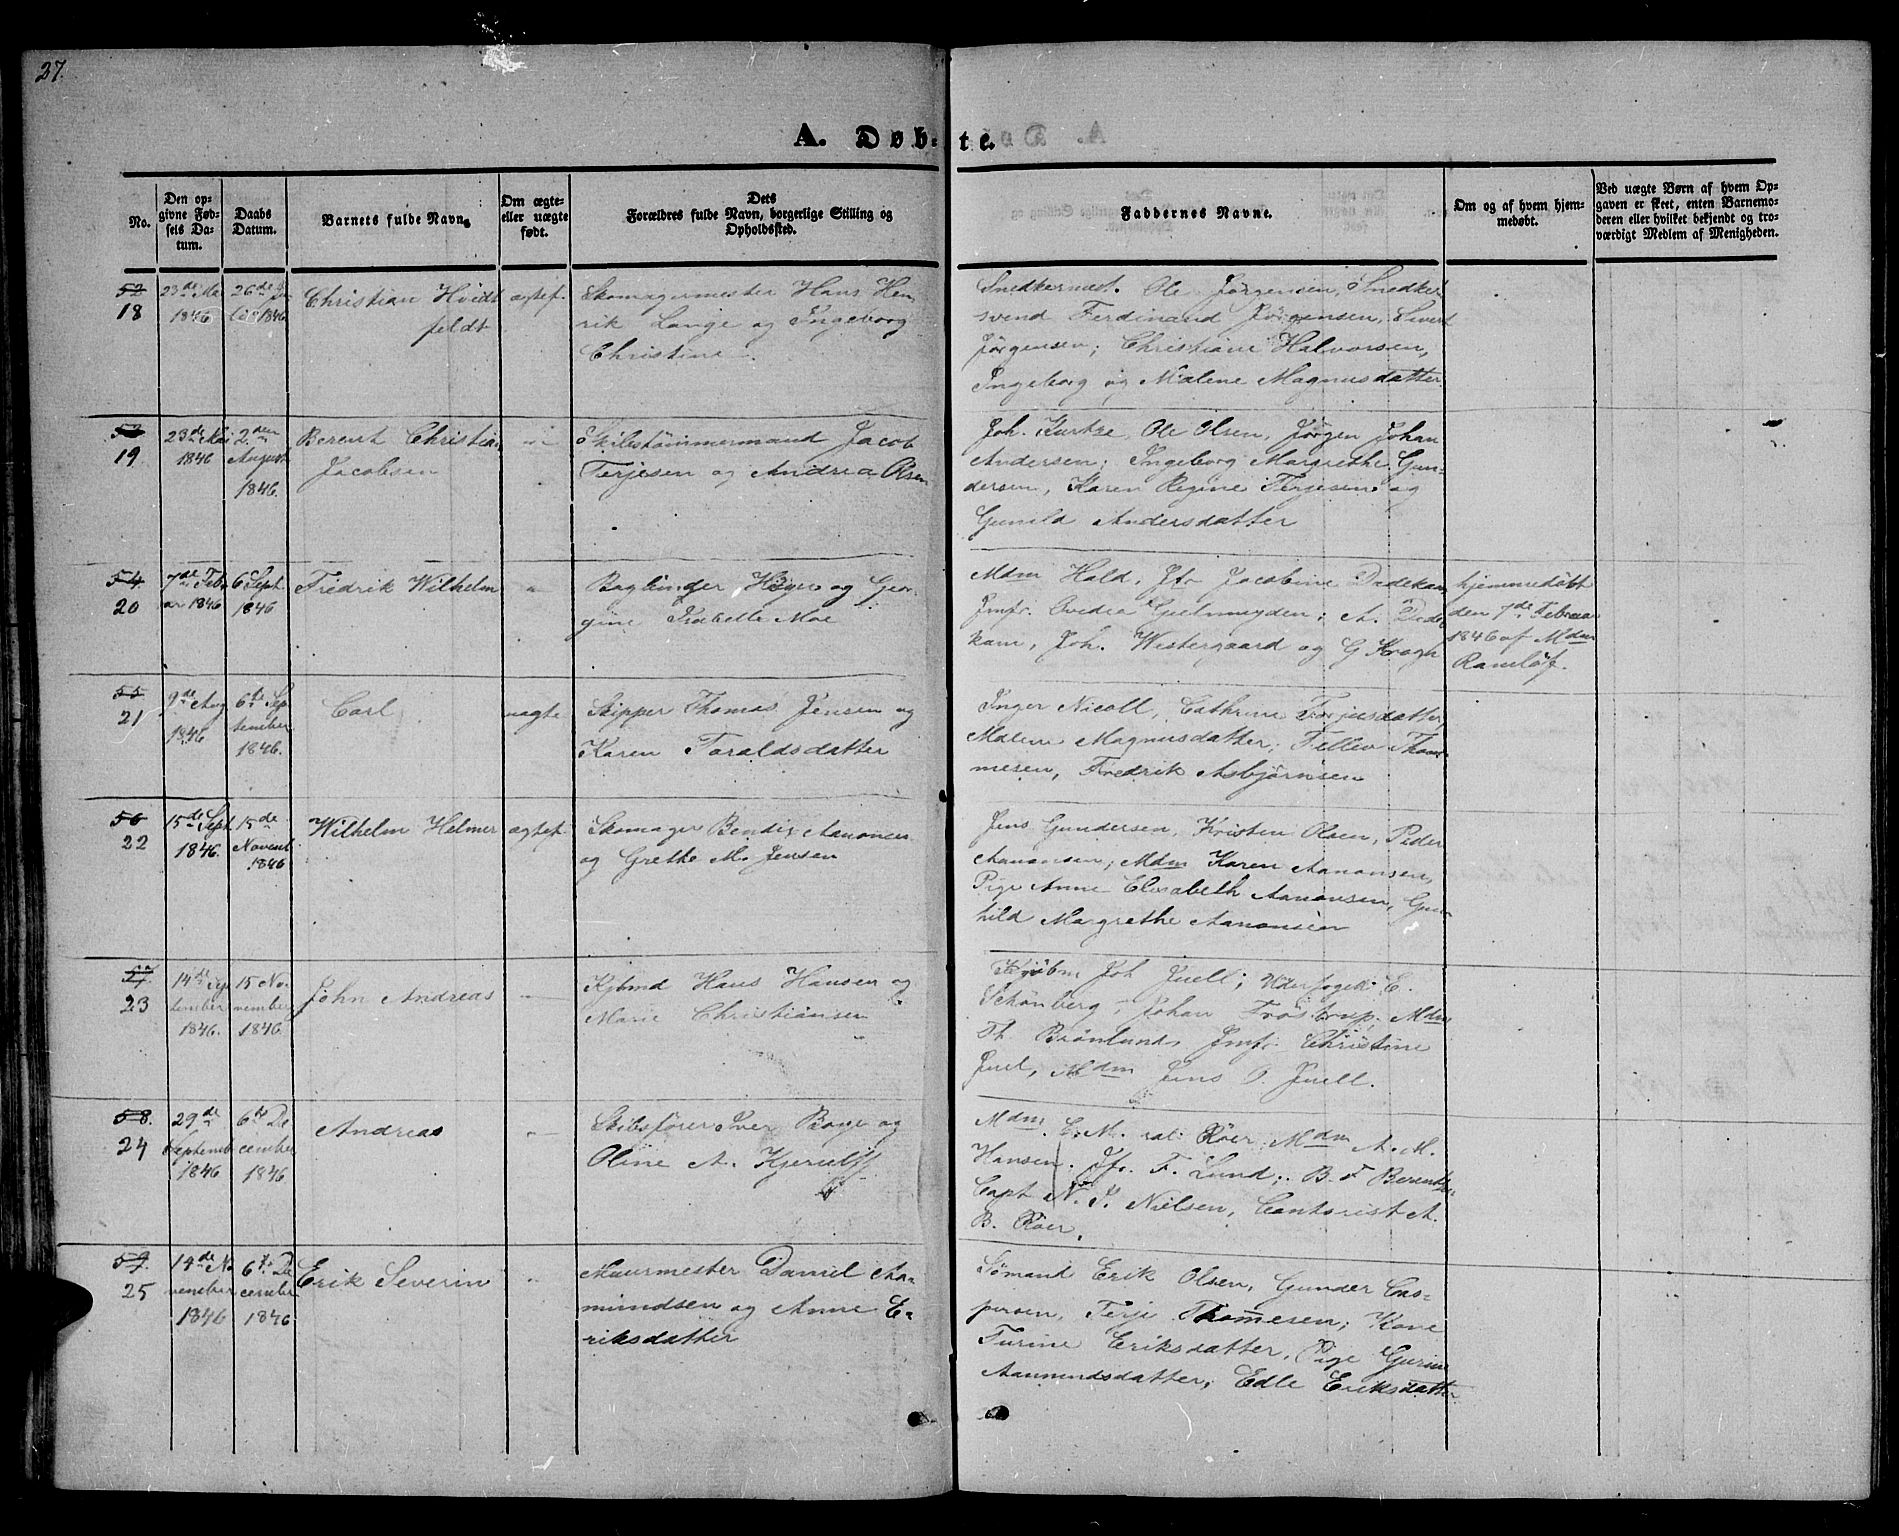 27.
A. Døb-
te.
No.
Den op-
givne Fød-
sels Da-
tum.
Daabs
Datum.
Barnets fulde Navn.
Om ægte-
eller uægte
født.
Dets
Forældres fulde Navn, borgerlige Stilling og
Opholdssted.
Faddernes Navne.
Om og af hvem hjem-
medøbt.
Ved uægte Børn af hvem Op-
gaven er skeet, enten Barnemo-
deren eller hvilket bekjendt og tro-
værdigt Medlem af Menigheden.
52
18
23de Mai
1846
26de Ju
lii 1846
Christian Hvidt
feldt
ægtef.
Skomagermester Hans Hen
rik Lange og Ingeborg
Christine
Snedkermest. Ole Jørgensen, Snedker
svend Ferdinand Jørgensen, Sivert
Jørgensen; Christiane Halvorsen,
Ingeborg og Malene Magnusdatter
53
19
23de Mai
1846
2den
August
1846.
Berent Christian
Jacobsen
Skibstømmermand Jacob
Terjesen og Andrea Olsen
Joh. Kurtze, Ole Olsen, Jørgen Johan
Andersen; Ingeborg Margrethe Gun-
dersen, Karen Regine Terjesen og
Gunild Andersdatter
54
20
7de Febr
ar 1846
6 Sept
1846
Fredrik Wilhelm
Bogbinder Høyer og Geor
gine Isabelle Moe
Mdm Hald, Jfr Jacobine Dedekam
Jmfr. Ovidia Gjelmuyden; A. Dede
kam, Joh. Westergaard og G Kragh
hjemmedøbt
den 7de Februar
1846 af Mdm
Raneløf.
55
21
9de Aug
1846
6te Sep
tember
1846.
Carl
uægte
Skipper Thomas Jensen og
Karen Toraldsdatter
Inger Nicoll, Cathrine Terjesdatter
Malene Magnusdatter; Tellev Thom
mesen, Fredrik Asbjørnsen
56
22
15de Sept
1846.
15de
Novemb
1846
Wilhelm Helmer
ægtef.
Skomager Bendix Aanonsen
og Grethe M. Jensen
Jens Gundersen, Kristen Olsen, Peder
Aanonsen; Mdm Karen Aanonsen,
Pige Anne Elisabeth Aanonsen, Gun
hild Margrethe Aanonsen
57
23
14de Sep
tember
1846.
15 No-
vember
1846
John Andreas
Kjbmd Hans Hansen og
Marie Christiansen
Kjøbm Joh Juell; Underfoged E.
Schönberg, Johan Frøstrup. Mdm
Th. Brønlund, Jmfr. Christine
Juel, Mdm Jens O. Juell.
58.
24
29de
Septemb
1846
6te De
cember
1846
Andreas
Skibsfører Iver Boye og
Oline A. Kjerulff
Mdm. E. M. sal: Røer; Mdm A. M.
Hansen. Jfr. F. Lund; B. F Berentzen
Capt N. J. Nielsen, Contorist A.
B. Røer.
59.
25
14de No
vember
1846
6te De
cember
1846
Erik Severin
Muurmester Daniel Aa-
mundsen og Anne E-
riksdatter
Sømand Erik Olsen, Gunder Cas-
persen, Terje Thomesen; Kone
Turine Eriksdatter, Pige Gurine
Aanundsdatter, Edle Eriksdatter